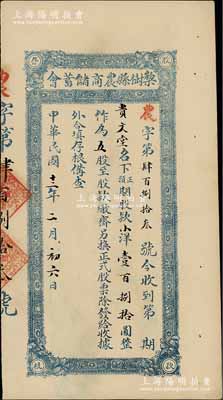 上海陽明拍賣
股 存
會蓄儲商農縣樹梨
農字第肆百捌拾叁號今收到第 期
貴文堂名下預正期股款小洋壹百捌拾圓整
作為五股至股款繳齊另換正式股票除發給收據
外合具存根備查
中華民國十一年二月初六日
農字第肆百捌拾叁號
上海陽明拍賣有限公司